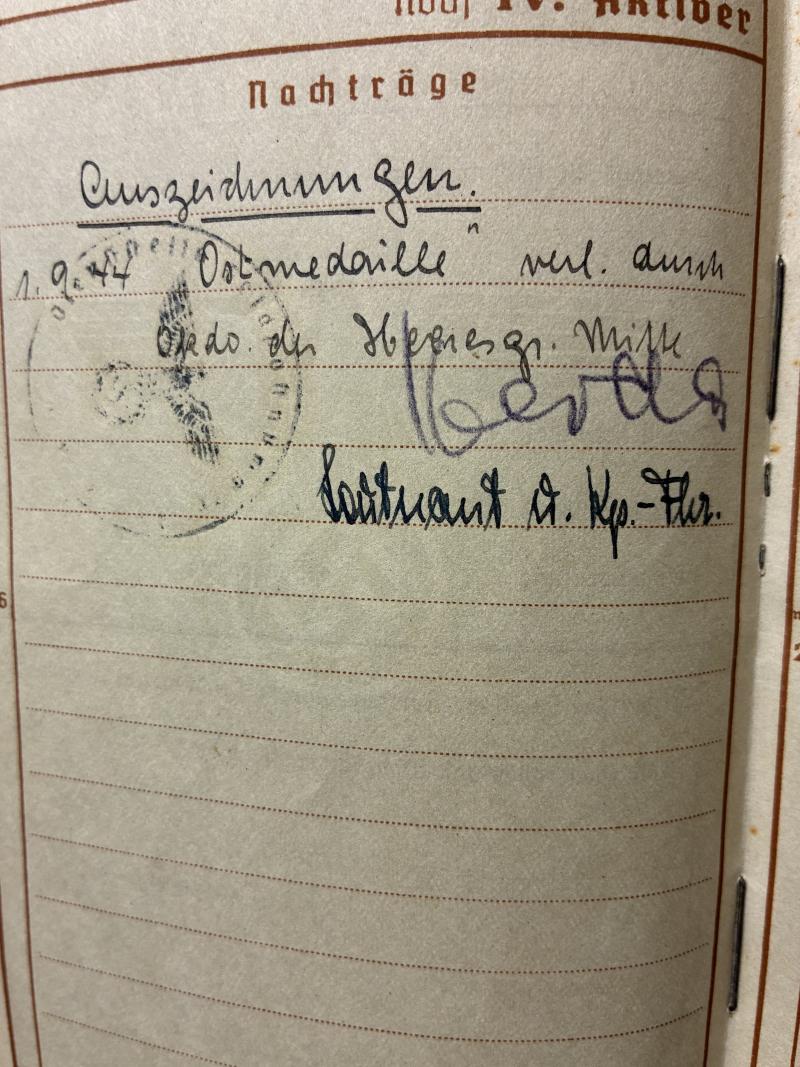 noch IV. Aktiver
Nachträge
Auszeichnungen.
1.9.44 Ostmedaille" verl. durch
Okdo. der Heeresgr. Mitte
Leutnant u. Kp.-Fhr.
6